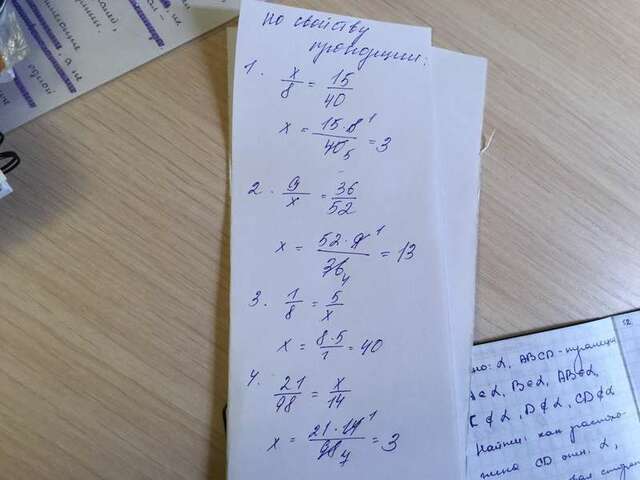 по свойству
пропорции:
1. x/8 = 15/40
x = 15·8/40 = 3
1
5
2. 9/x = 36/52
x = 52·9/36 = 13
1
4
3. 1/8 = 5/x
x = 8·5/1 = 40
4. 21/98 = x/14
x = 21·14/98 = 3
1
4
12
но: α, ABCD - трапеция
A∈α, B∈α, AB∈α,
C∉α, D∉α, CD∉α
Найти: как располо-
жена CD отн. α,
одной
, а не